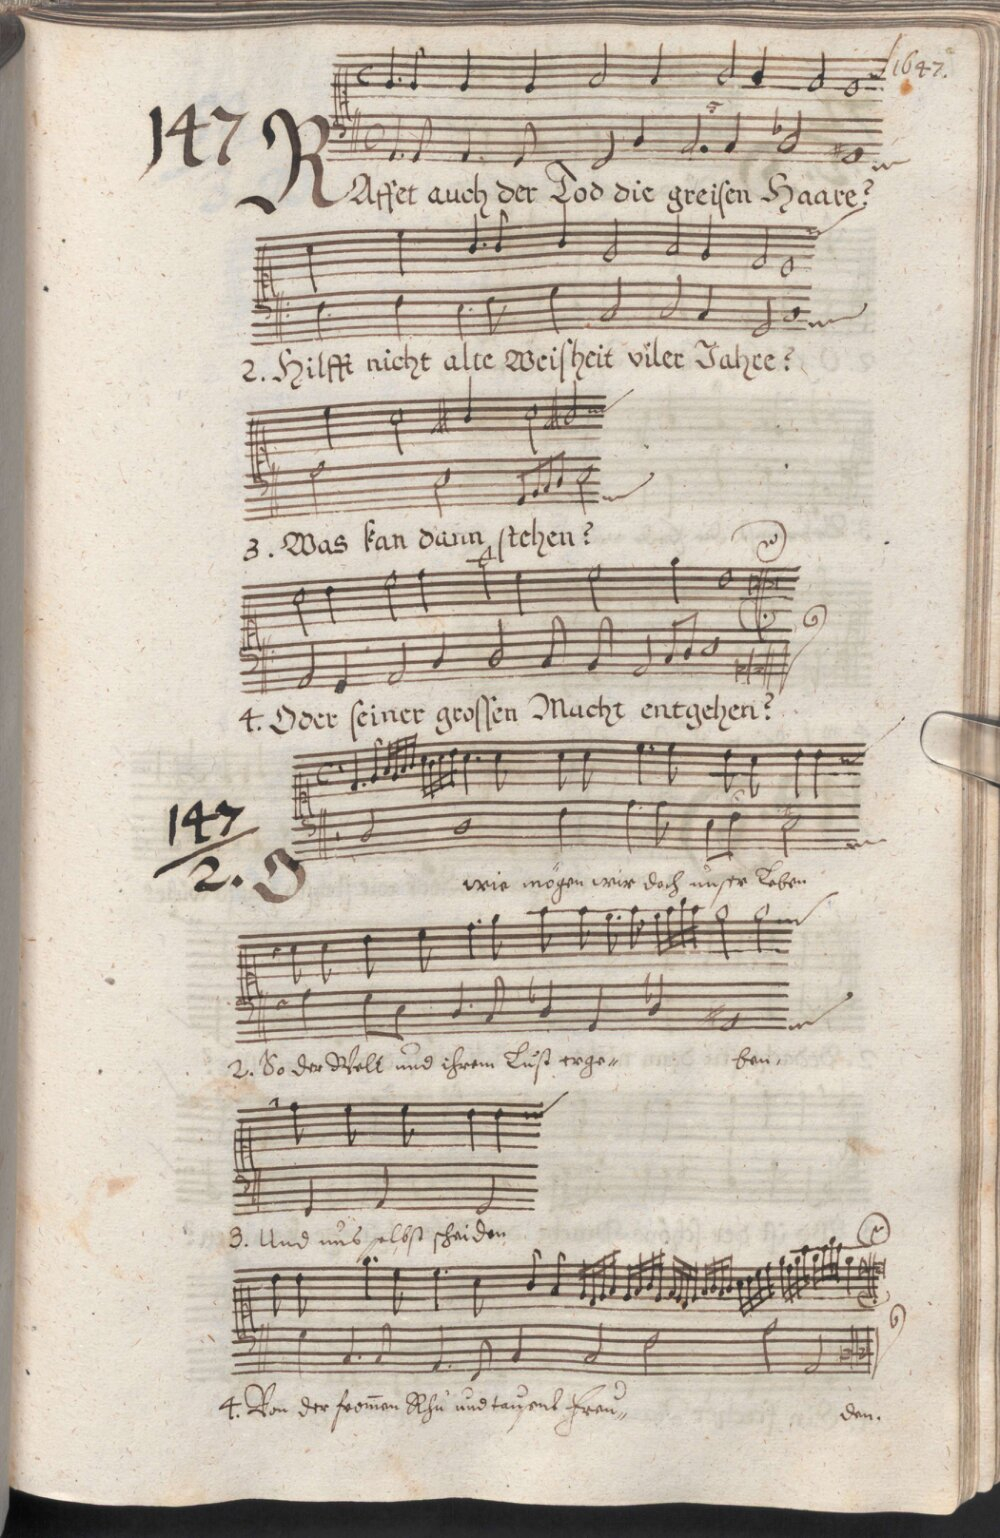 1647.
147 RAffet auch der Tod die greisen Haare?
2. Hilfft nicht alte Weisheit viler Jahre?
3. Was kan dann stehen?
4. Oder seiner grossen Macht entgehen?
147/2. O wie mögen wir doch unser Leben
2. So der Welt und ihrem Lust erge-- ben,
3. Und uns selbst scheiden
4. Von der from̃en Rhu und tausent Freu-- den.